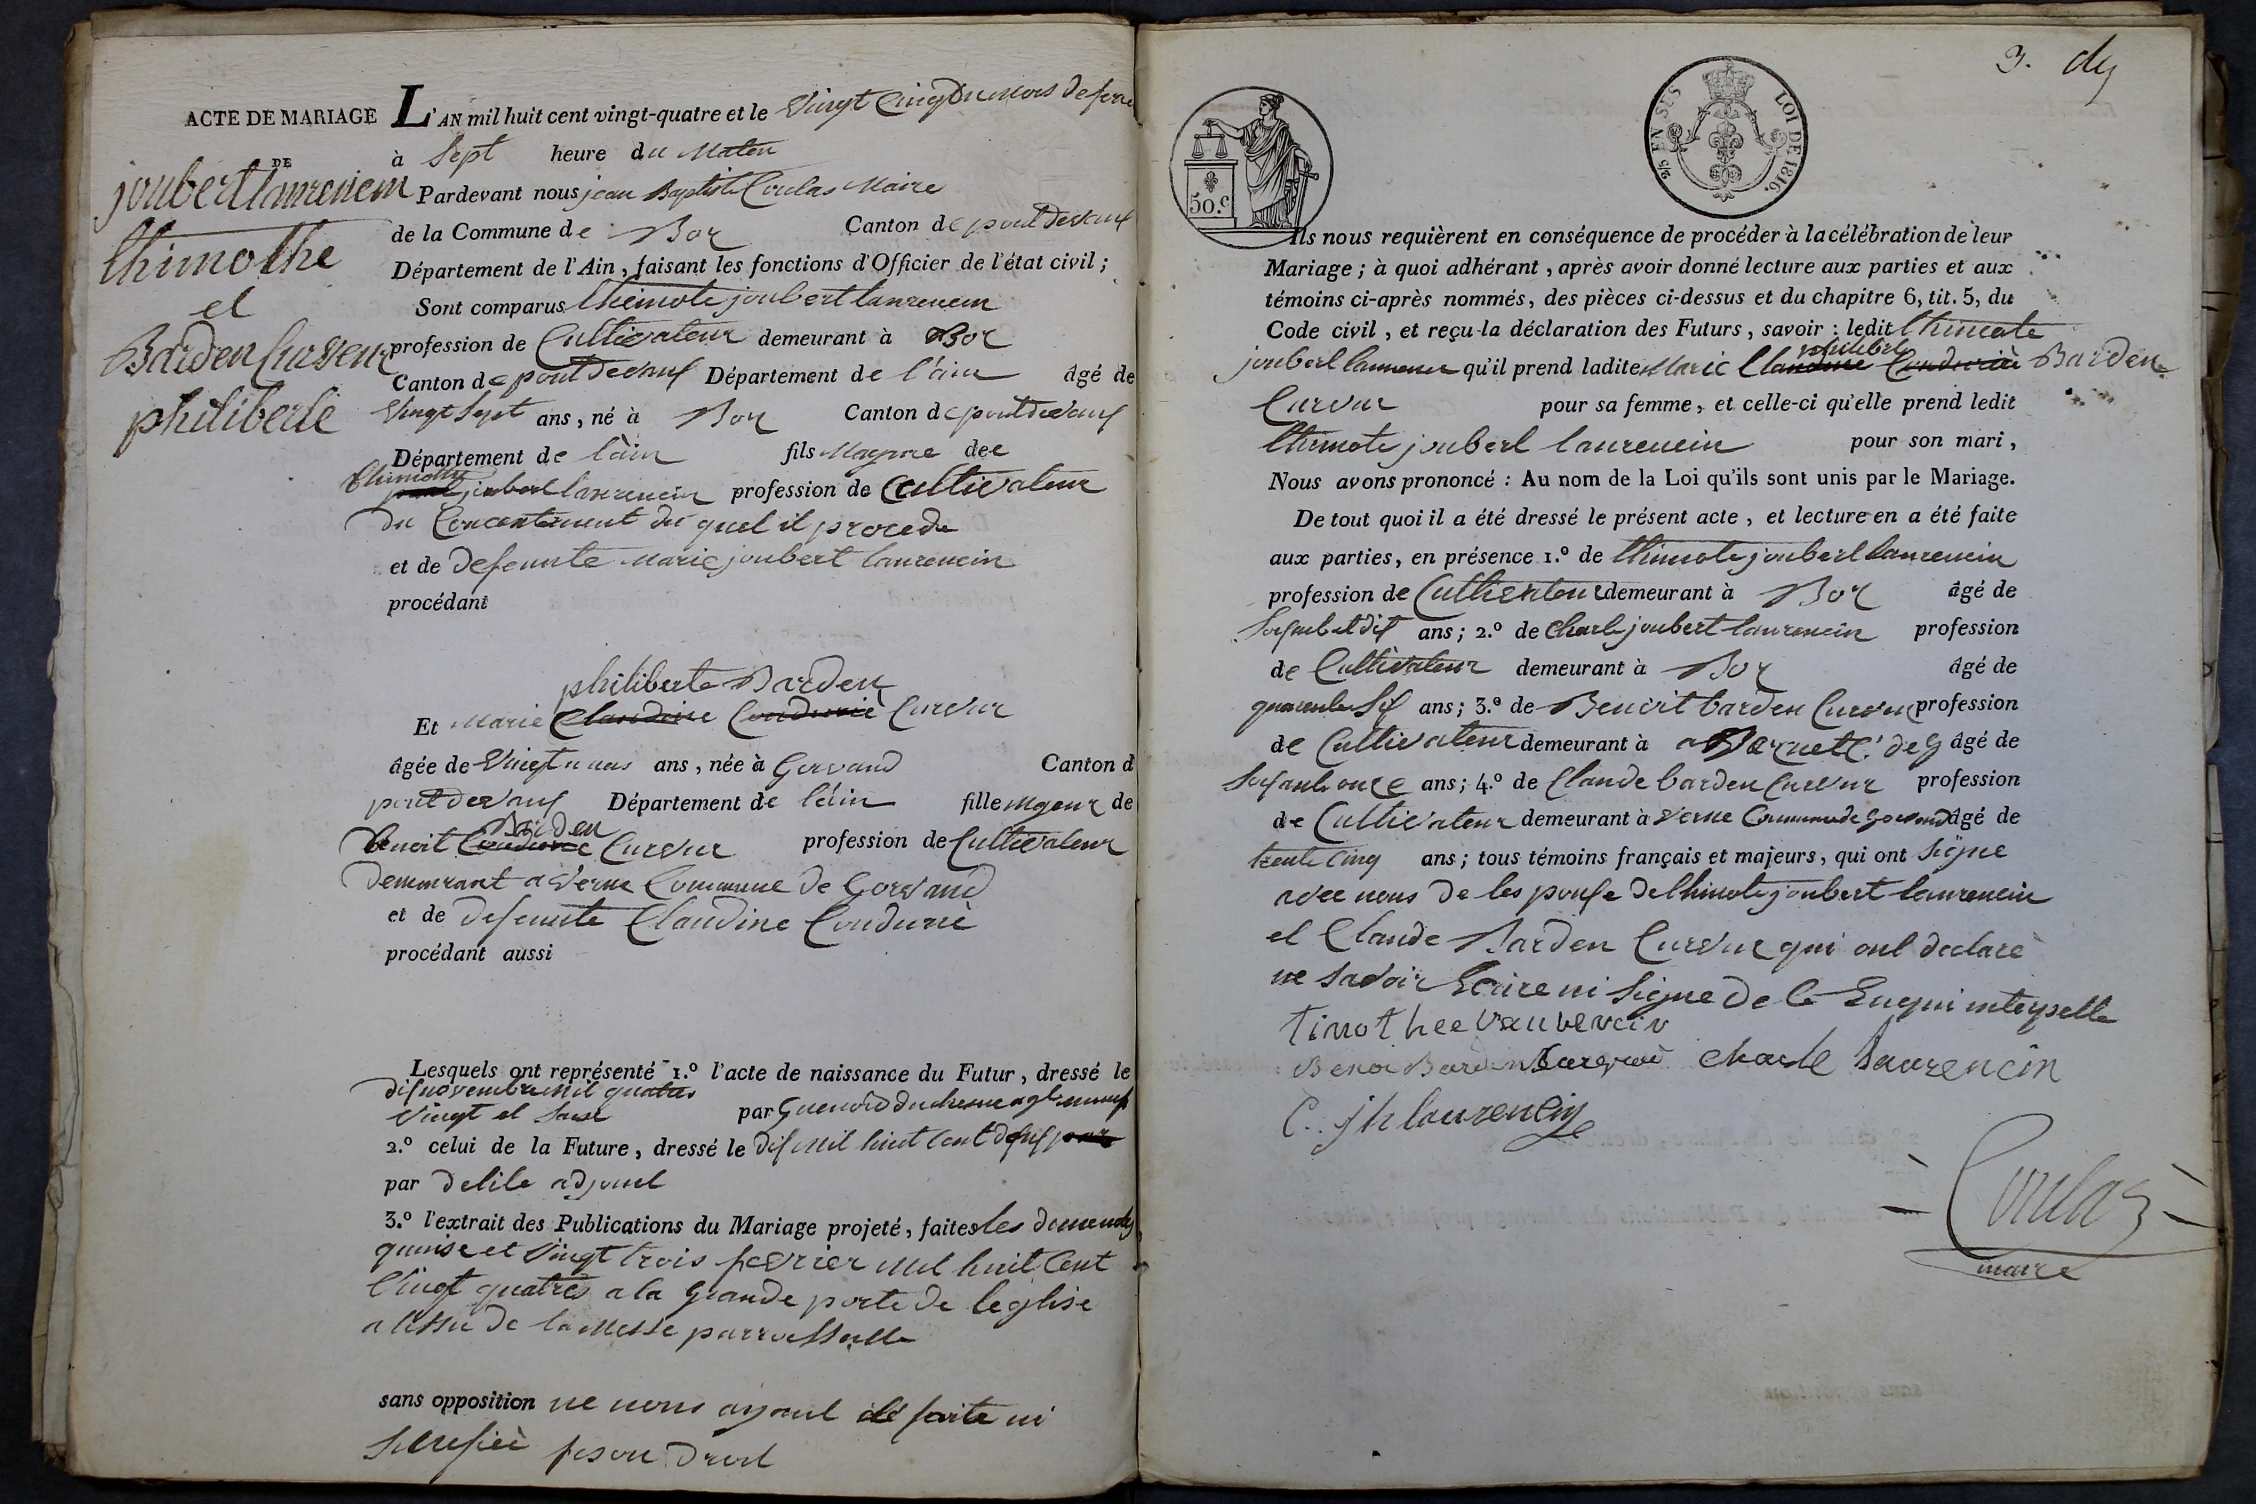 ACTE DE MARIAGE
DE
joubert laurencin
thimothe
et
Barden Curveur
philiberte
L'AN mil huit cent vingt-quatre et le Vingt Cinq du mois de fevr
à Sept heure du Maten
Pardevant nous jean Baptiste Coulas Maire
de la Commune de Boz Canton de pont devaux
Département de l'Ain, faisant les fonctions d'Officier de l'état civil;
Sont comparus thimote joubert laurencin
profession de Cultivateur demeurant à Boz
Canton de pont devaux Département de l'ain âgé de
Vingt Sept ans, né à Boz Canton de pont devaux
Département de l'ain fils Mageure de
thimothe
joubert laurencin profession de Cultivateur
du Concentement du quel il procede
et de defeunte Marie joubert laurencin
procédant
philiberte Barden
Et Marie Claudine Condurie Curvur
âgée de Vingt ans, née à Gorvand Canton d
pont devaux Département de l'ain fille Mgeur de
Barden
Benoit Condurie Curvur profession de Cultivateur
demeurant a Verne Commune de Gorvand
et de defeunte Claudine Condurie
procédant aussi
Lesquels ont représenté 1.º l'acte de naissance du Futur, dressé le
dix novembre mil quatre
Vingt et Sase par
2.º celui de la Future, dressé le dix mil huit Cent par
par Delile adjouel
3.º l'extrait des Publications du Mariage projeté, faites les
quinse et Vingt trois fevrier mil huit Cent
Vingt quatres a la grande porte de leglise
a lissue de la Messe parroissialle
sans opposition ne nous ayant été faite ni
3. de
50.c
EN SUS
LOI DE 1816.
Ils nous requièrent en conséquence de procéder à la célébration de leur
Mariage; à quoi adhérant, après avoir donné lecture aux parties et aux
témoins ci-après nommés, des pièces ci-dessus et du chapitre 6, tit. 5, du
Code civil, et reçu la déclaration des Futurs, savoir: ledit thimote
philibert
joubert laurencin qu'il prend ladite Marie Claudine Condurier Barden
Curvur pour sa femme, et celle-ci qu'elle prend ledit
thimote joubert laurencin pour son mari,
Nous avons prononcé: Au nom de la Loi qu'ils sont unis par le Mariage.
De tout quoi il a été dressé le présent acte, et lecture en a été faite
aux parties, en présence 1.º de thimote joubert laurencin
profession de Cultivateur demeurant à Boz âgé de
ans; 2.º de Charle joubert laurencin profession
de Cultivateur demeurant à Boz âgé de
quarente Sis ans; 3.º de Benoit barden Curvur profession
de Cultivateur demeurant à a Verne C. de G âgé de
Soisante once ans; 4.º de Claude barden Curvur profession
de Cultivateur demeurant à Verne Commune de Gorvand âgé de
trente Cinq ans; tous témoins français et majeurs, qui ont Signe
avec nous de les pouse de thimote joubert laurencin
et Claude Barden Curvur qui ont declare
ne Savoir Ecrire ni Signe de Ce Enqui inteypelle
timothee laurencin
Benoi Barden Curveur Charle Laurencin
C. jh laurencin
Coulas
maire